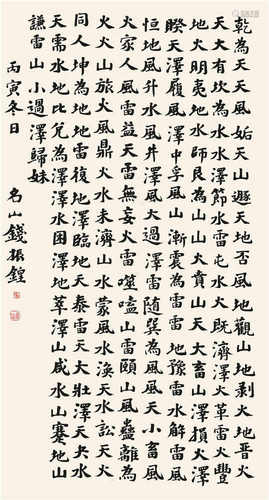 乾為天天風姤天山遯天地否風地觀山地剝火地晉火
天大有坎為水水澤節水雷屯水火既濟澤火革雷火豐
地火明夷地水師艮為山山火賁山天大畜山澤損火澤
睽天澤履風澤中孚風山漸震為雷雷地豫雷水解雷風
恒地風升水風井澤風大過澤雷隨巽為風風天小畜風
火家人風雷益天雷無妄火雷噬嗑山雷頤山風蠱離為
火火山旅火風鼎火水未濟山水蒙風水渙天水訟天火
同人坤為地地雷復地澤臨地天泰雷天大壯澤天夬水
天需水地比兌為澤澤水困澤地萃澤山咸水山蹇地山
謙雷山小過澤歸妹
丙寅冬日
名山錢振鍠